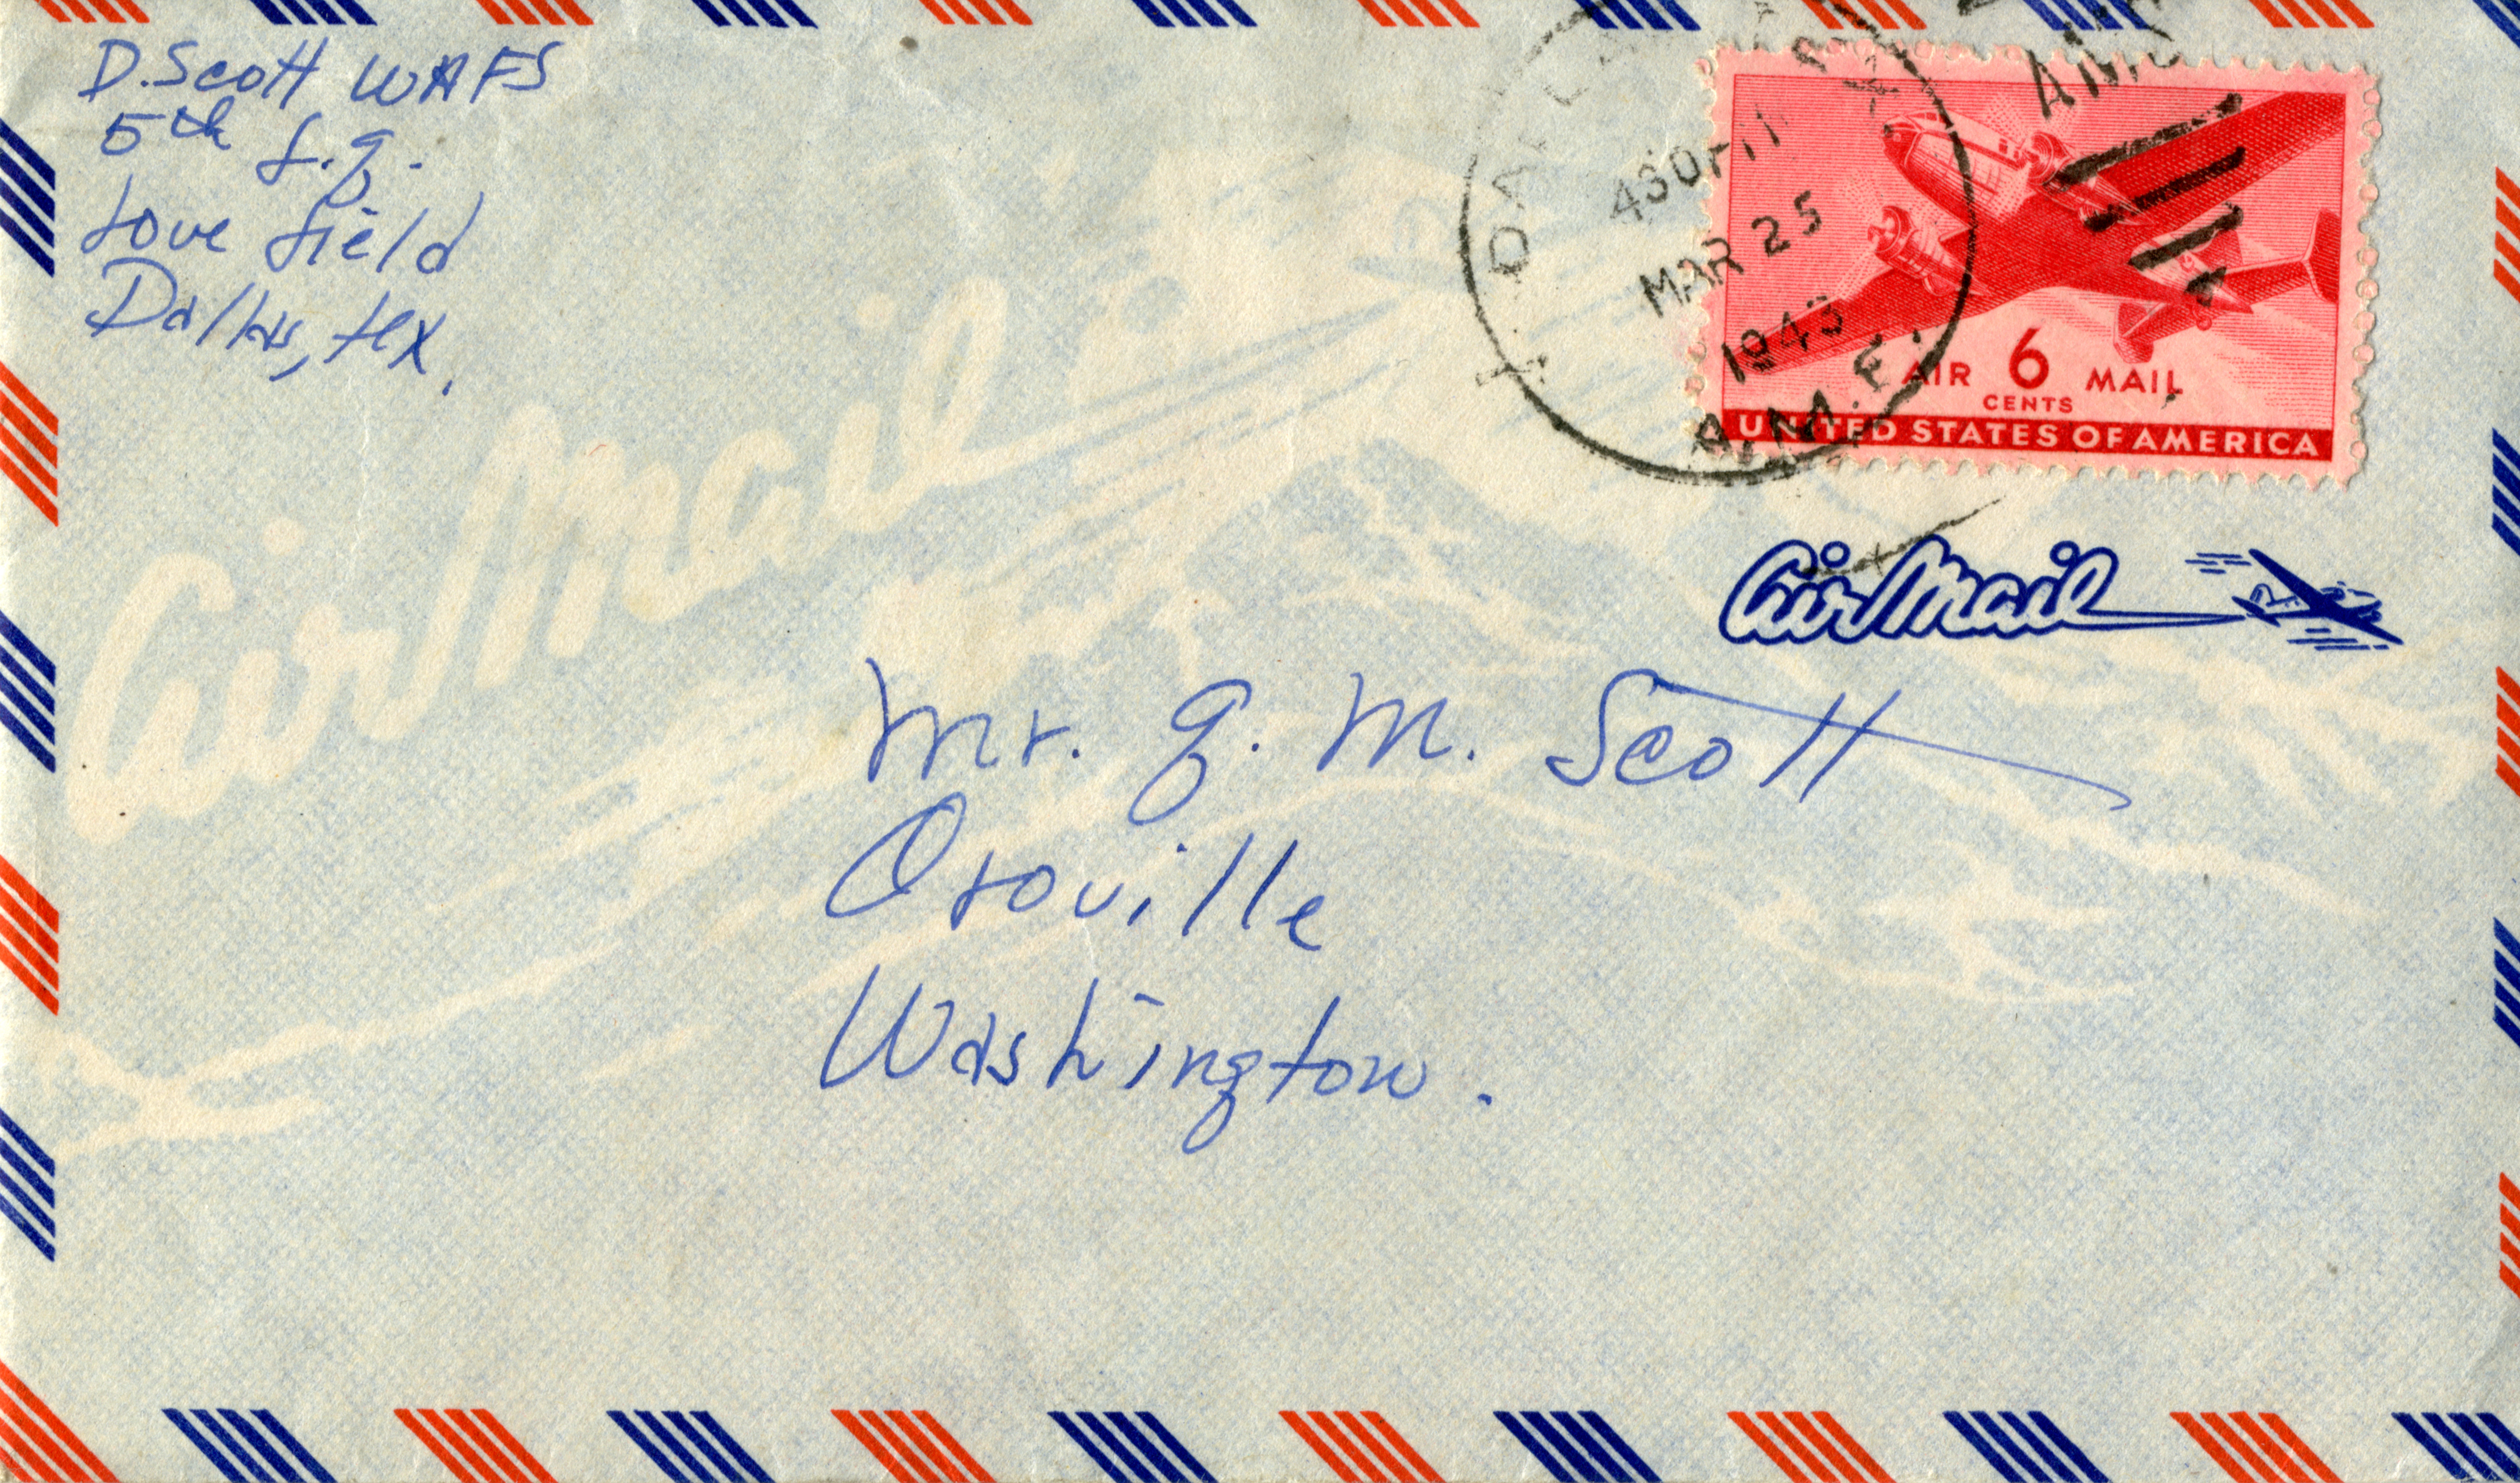 D. Scott WAFS
5th f.g.
Love field
Dallas, tex.
430 PM
MAR 25
1943
A.M.F.
AMF
AIR 6 MAIL
CENTS
UNITED STATES OF AMERICA
Air Mail
Air Mail
Mr. G. M. Scott
Oroville
Washington.